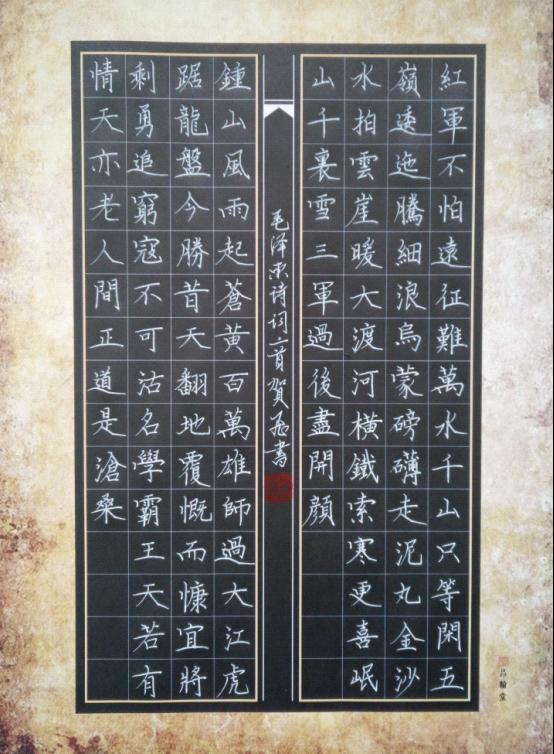 紅軍不怕遠征難萬水千山只等閑五
嶺逶迤騰細浪烏蒙磅礴走泥丸金沙
水拍雲崖暖大渡河橫鐵索寒更喜岷
山千裏雪三軍過後盡開顏
毛泽东诗词二首賀書
鍾山風雨起蒼黃百萬雄師過大江虎
踞龍盤今勝昔天翻地覆慨而慷宜將
剩勇追窮寇不可沽名學霸王天若有
情天亦老人間正道是滄桑
翰堂